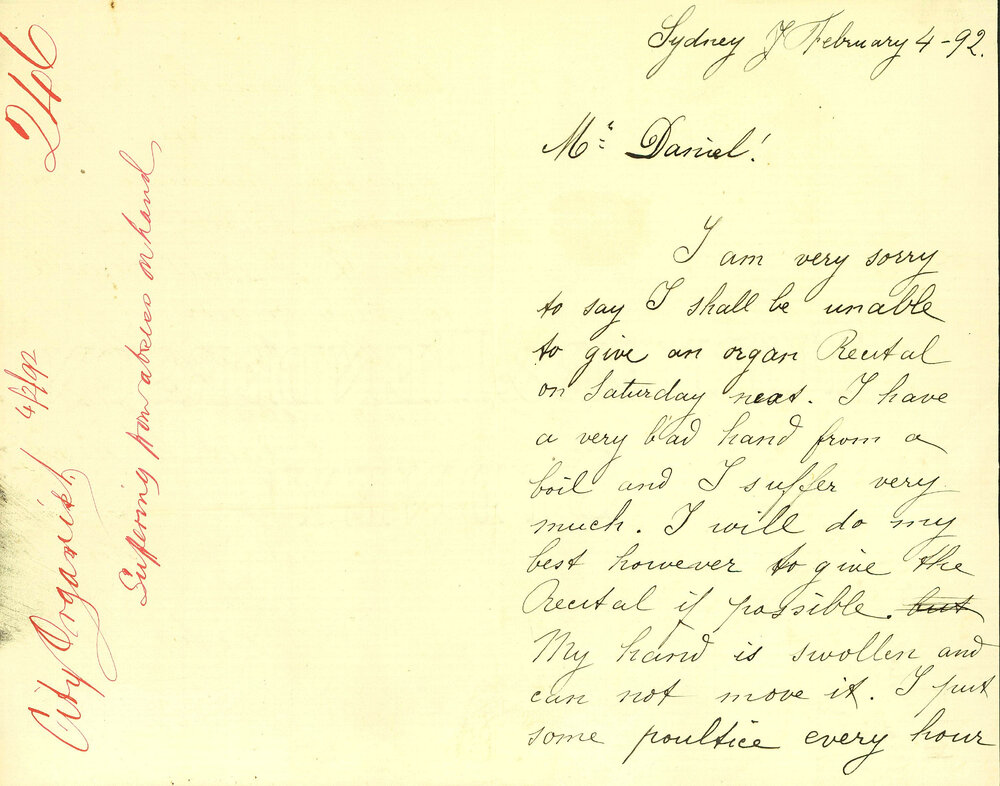 246
City Organist 4/2/92
Suffering from abscess on hand,
Sydney February 4-92.
Mr Daniel!
I am very sorry
to say I shall be unable
to give an organ Recital
on Saturday next. I have
a very bad hand from a
boil and I suffer very
much. I will do my
best however to give the
Recital if possible. but
My hand is swollen and
can not move it. I put
some poultice every hour